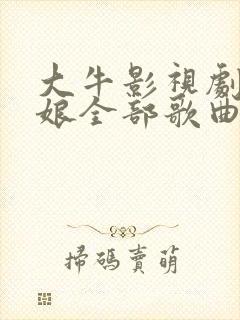 大牛影視劇
娘全部歌曲
掃碼賣萌